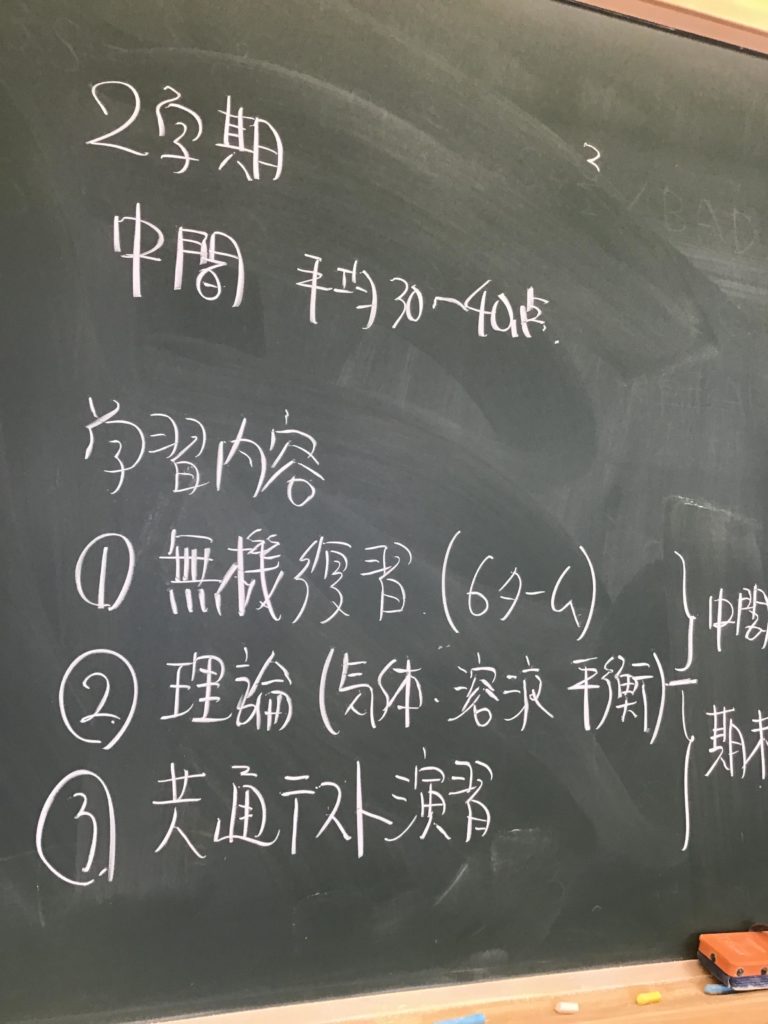 2学期
中間 平均30〜40点.
学習内容
① 無機復習.(6タ-ム)
② 理論(気体・溶液 平衡)
③ 共通テスト演習
中間
期末